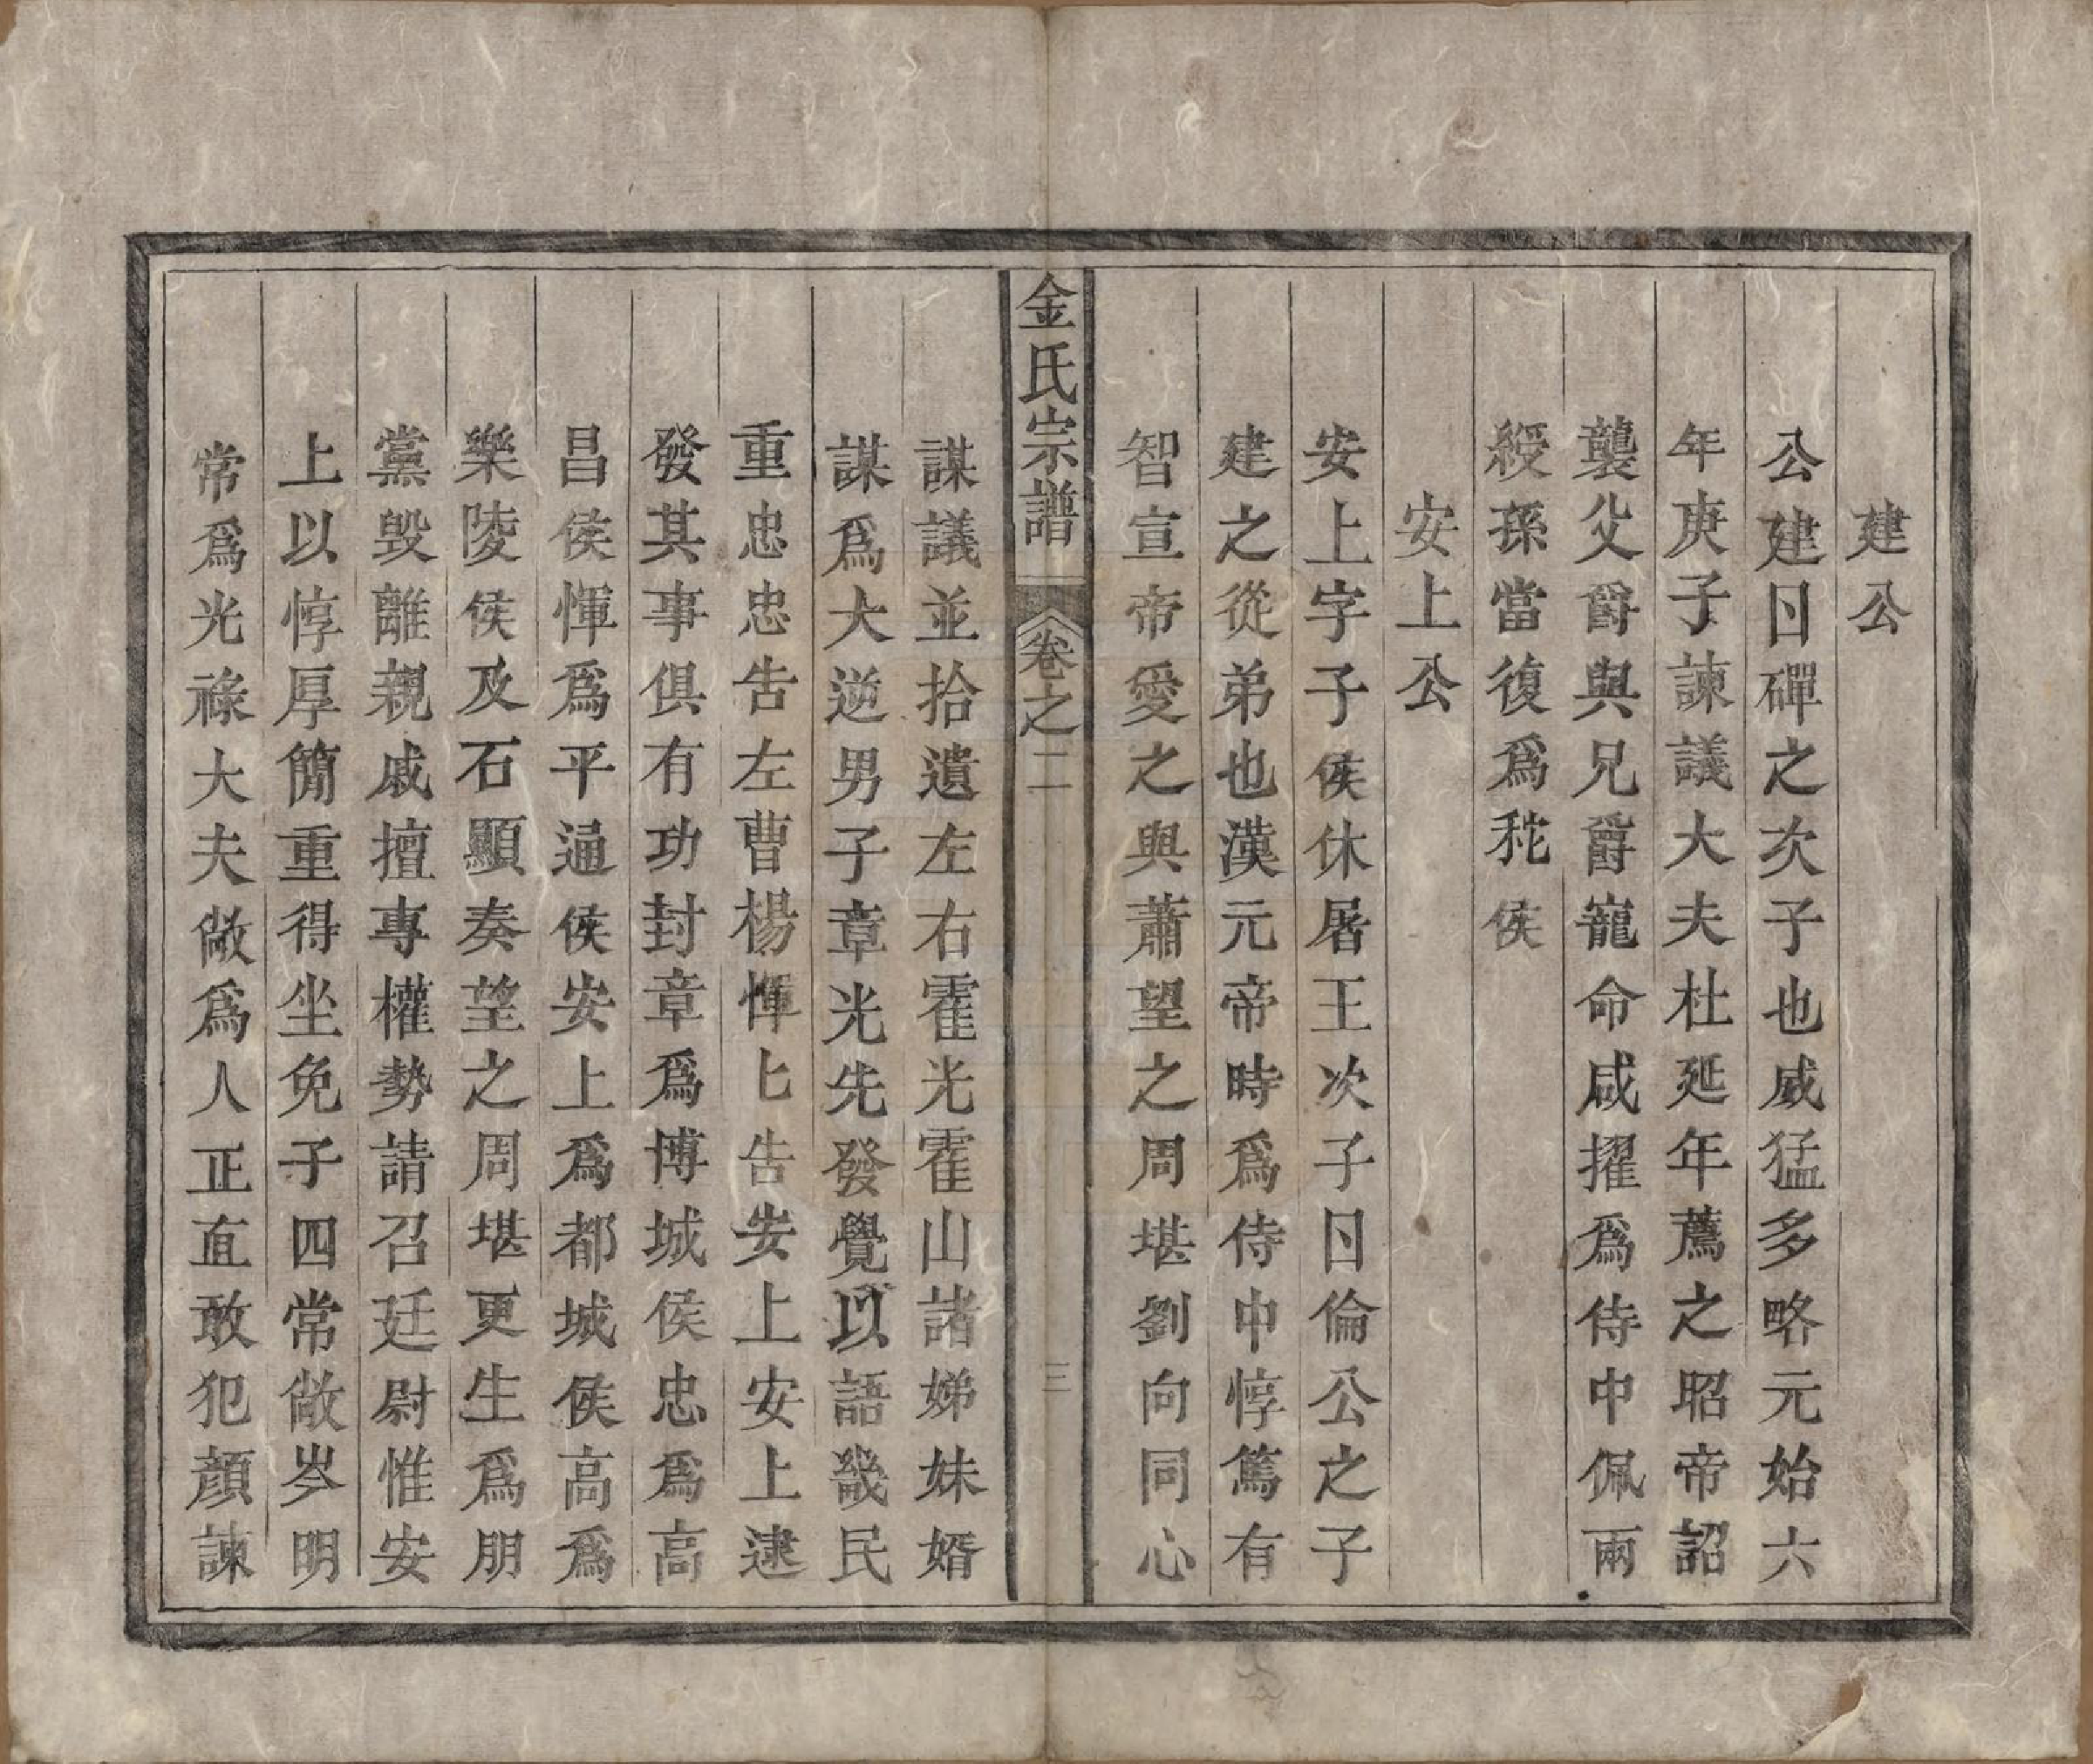 建公
公建日磾之次子也威猛多略元始六
年庚子諫議大夫杜延年薦之昭帝詔
襲父爵與兄爵寵命咸擢爲侍中佩兩
綬孫當復爲秺侯
安上公
安上字子侯休屠王次子日倫公之子
建之從弟也漢元帝時爲侍中惇篤有
智宣帝愛之與蕭望之周堪劉向同心
金氏宗譜
卷之二
三
謀議並拾遺左右霍光霍山諸娣妹婿
謀爲大逆男子章光先發覺以語畿民
重忠忠告左曹楊惲匕告安上安上逮
發其事俱有功封章爲博城侯忠爲高
昌侯惲爲平通侯安上爲都城侯高爲
樂陵侯及石顯奏望之周堪更生爲朋
黨毁離親戚擅專權勢請召廷尉惟安
上以惇厚簡重得坐免子四常敞岑明
常爲光祿大夫敞爲人正直敢犯顏諫